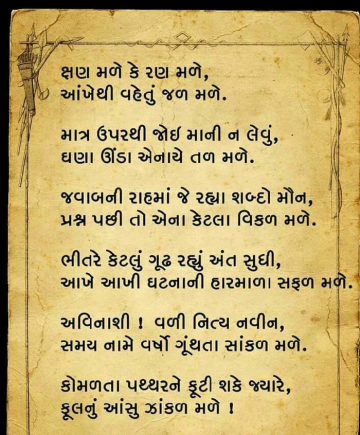 ક્ષણ મળે કે રણ મળે,
આંખેથી વહેતું જળ મળે.
માત્ર ઉપરથી જોઈ માની ન લેવું,
ઘણા ઊંડા એનાયે તળ મળે.
જવાબની રાહમાં જે રહ્યા શબ્દો મૌન,
પ્રશ્ન પછી તો એના કેટલા વિકળ મળે.
ભીતરે કેટલું ગૂઢ રહ્યું અંત સુધી,
આખે આખી ઘટનાની હારમાળા સફળ મળે.
અવિનાશી ! વળી નિત્ય નવીન,
સમય નામે વર્ષો ગૂંથતા સાંકળ મળે.
કોમળતા પથ્થરને ફૂટી શકે જ્યારે,
ફૂલનું આંસુ ઝાંકળ મળે !